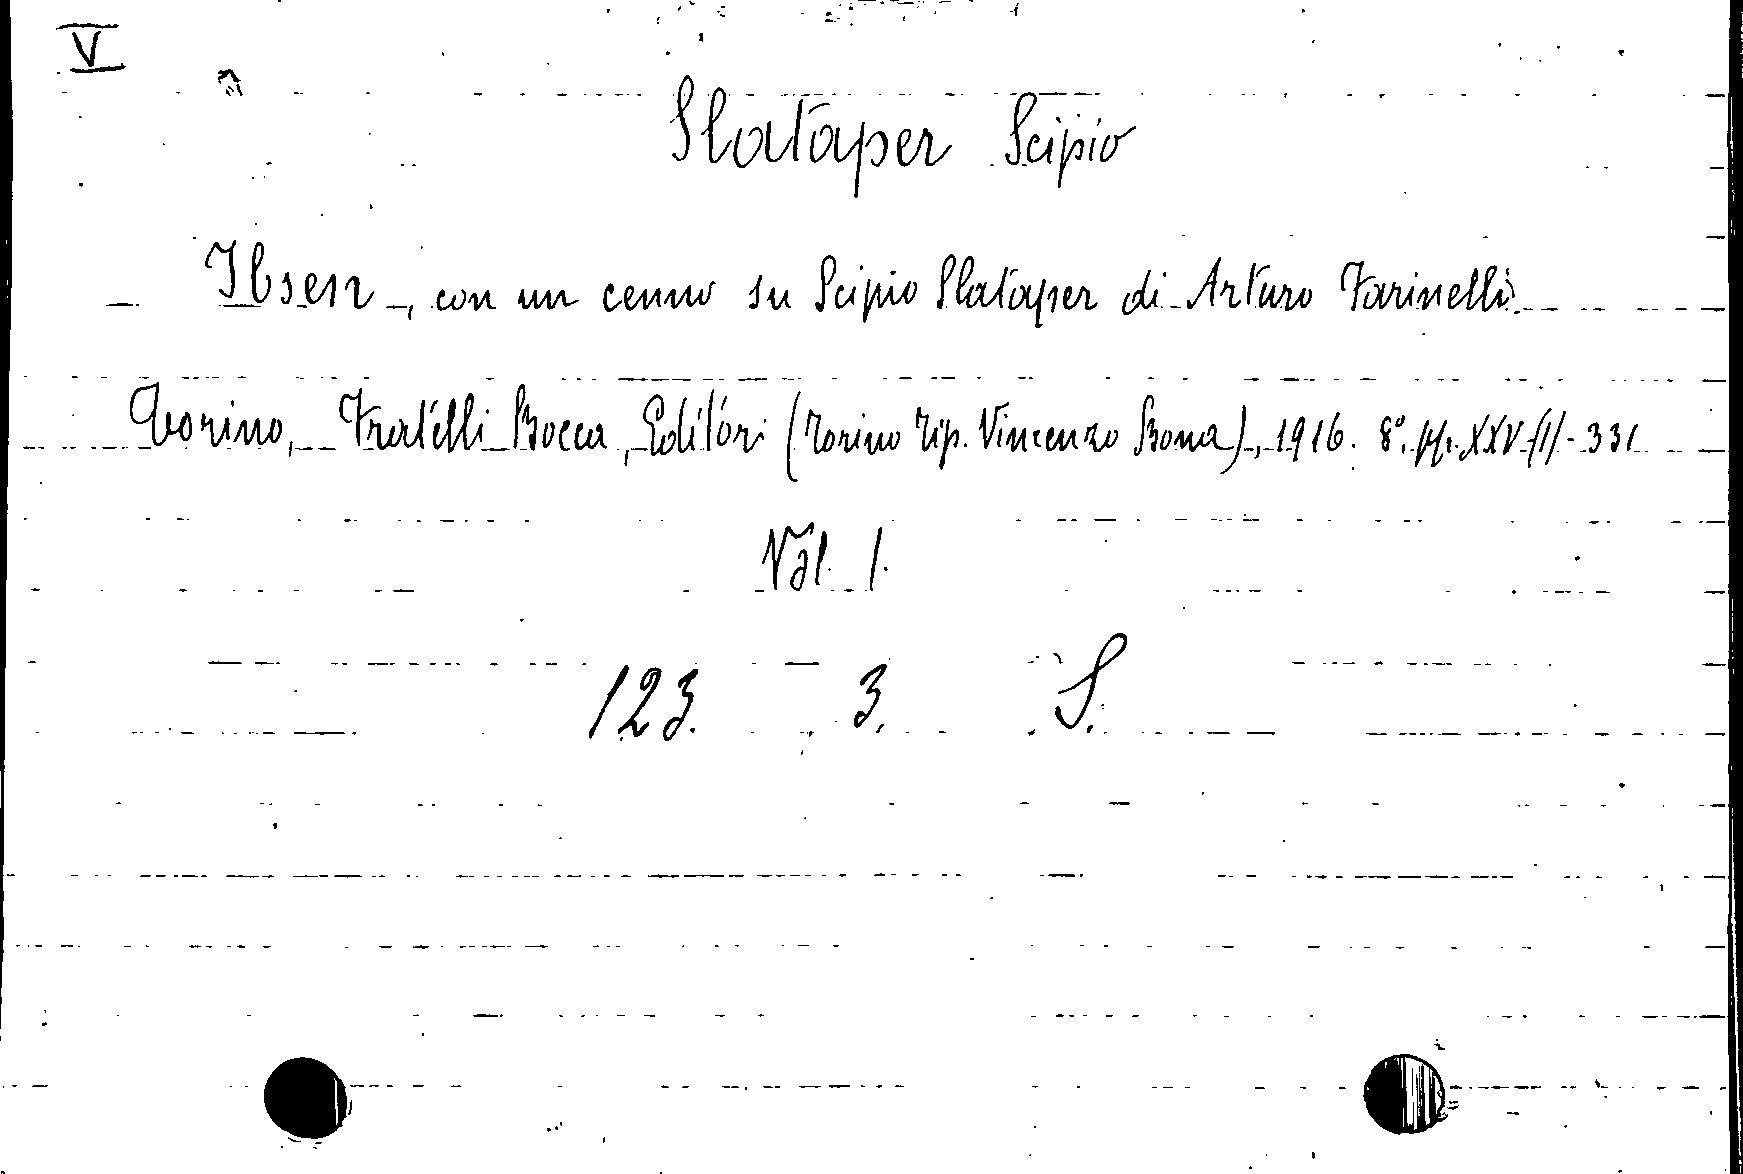 V
Slataper Scipio
Ibsen, con un cenno su Scipio Slataper di Arturo Farinelli.
Torino, Fratelli Bocca, Editori (Torino Tip. Vincenzo Bona), 1916. 8°. pp. XXV-(1)-331
Vol. 1.
123. 3. S.